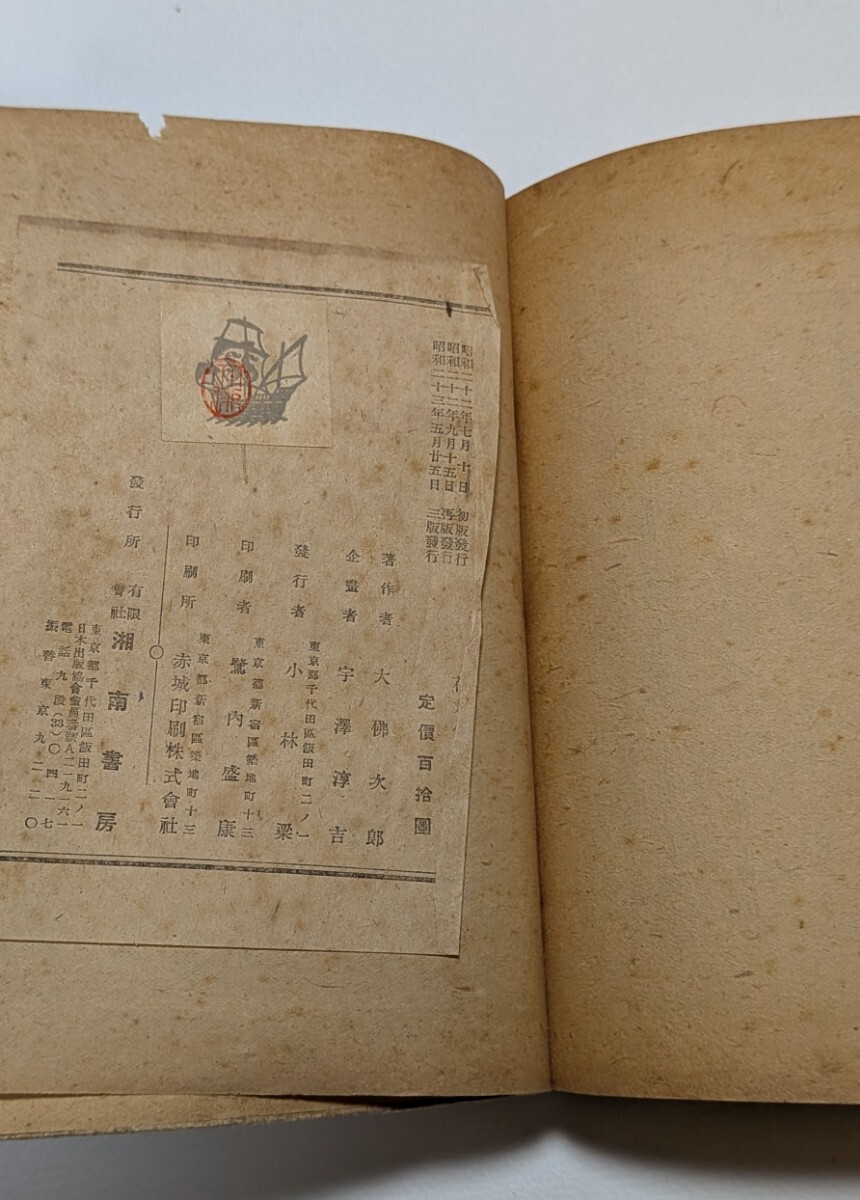 昭和二十二年七月十日 初版發行
昭和二十二年九月十五日 再版發行
昭和二十三年五月廿五日 三版發行
定價百拾圓
著作者 大佛次郎
企畫者 宇澤淳吉
東京都千代田區飯田町二ノ一
發行者 小林梁
東京都新宿區築地町十三
印刷者 鷺内盛康
東京都新宿區築地町十三
印刷所 赤城印刷株式會社
發行所 有限會社 湘南書房
東京都千代田區飯田町二ノ一
日本出版協會會員番號A二一九一六一
電話九段(33)〇四一七
振替東京九二二〇